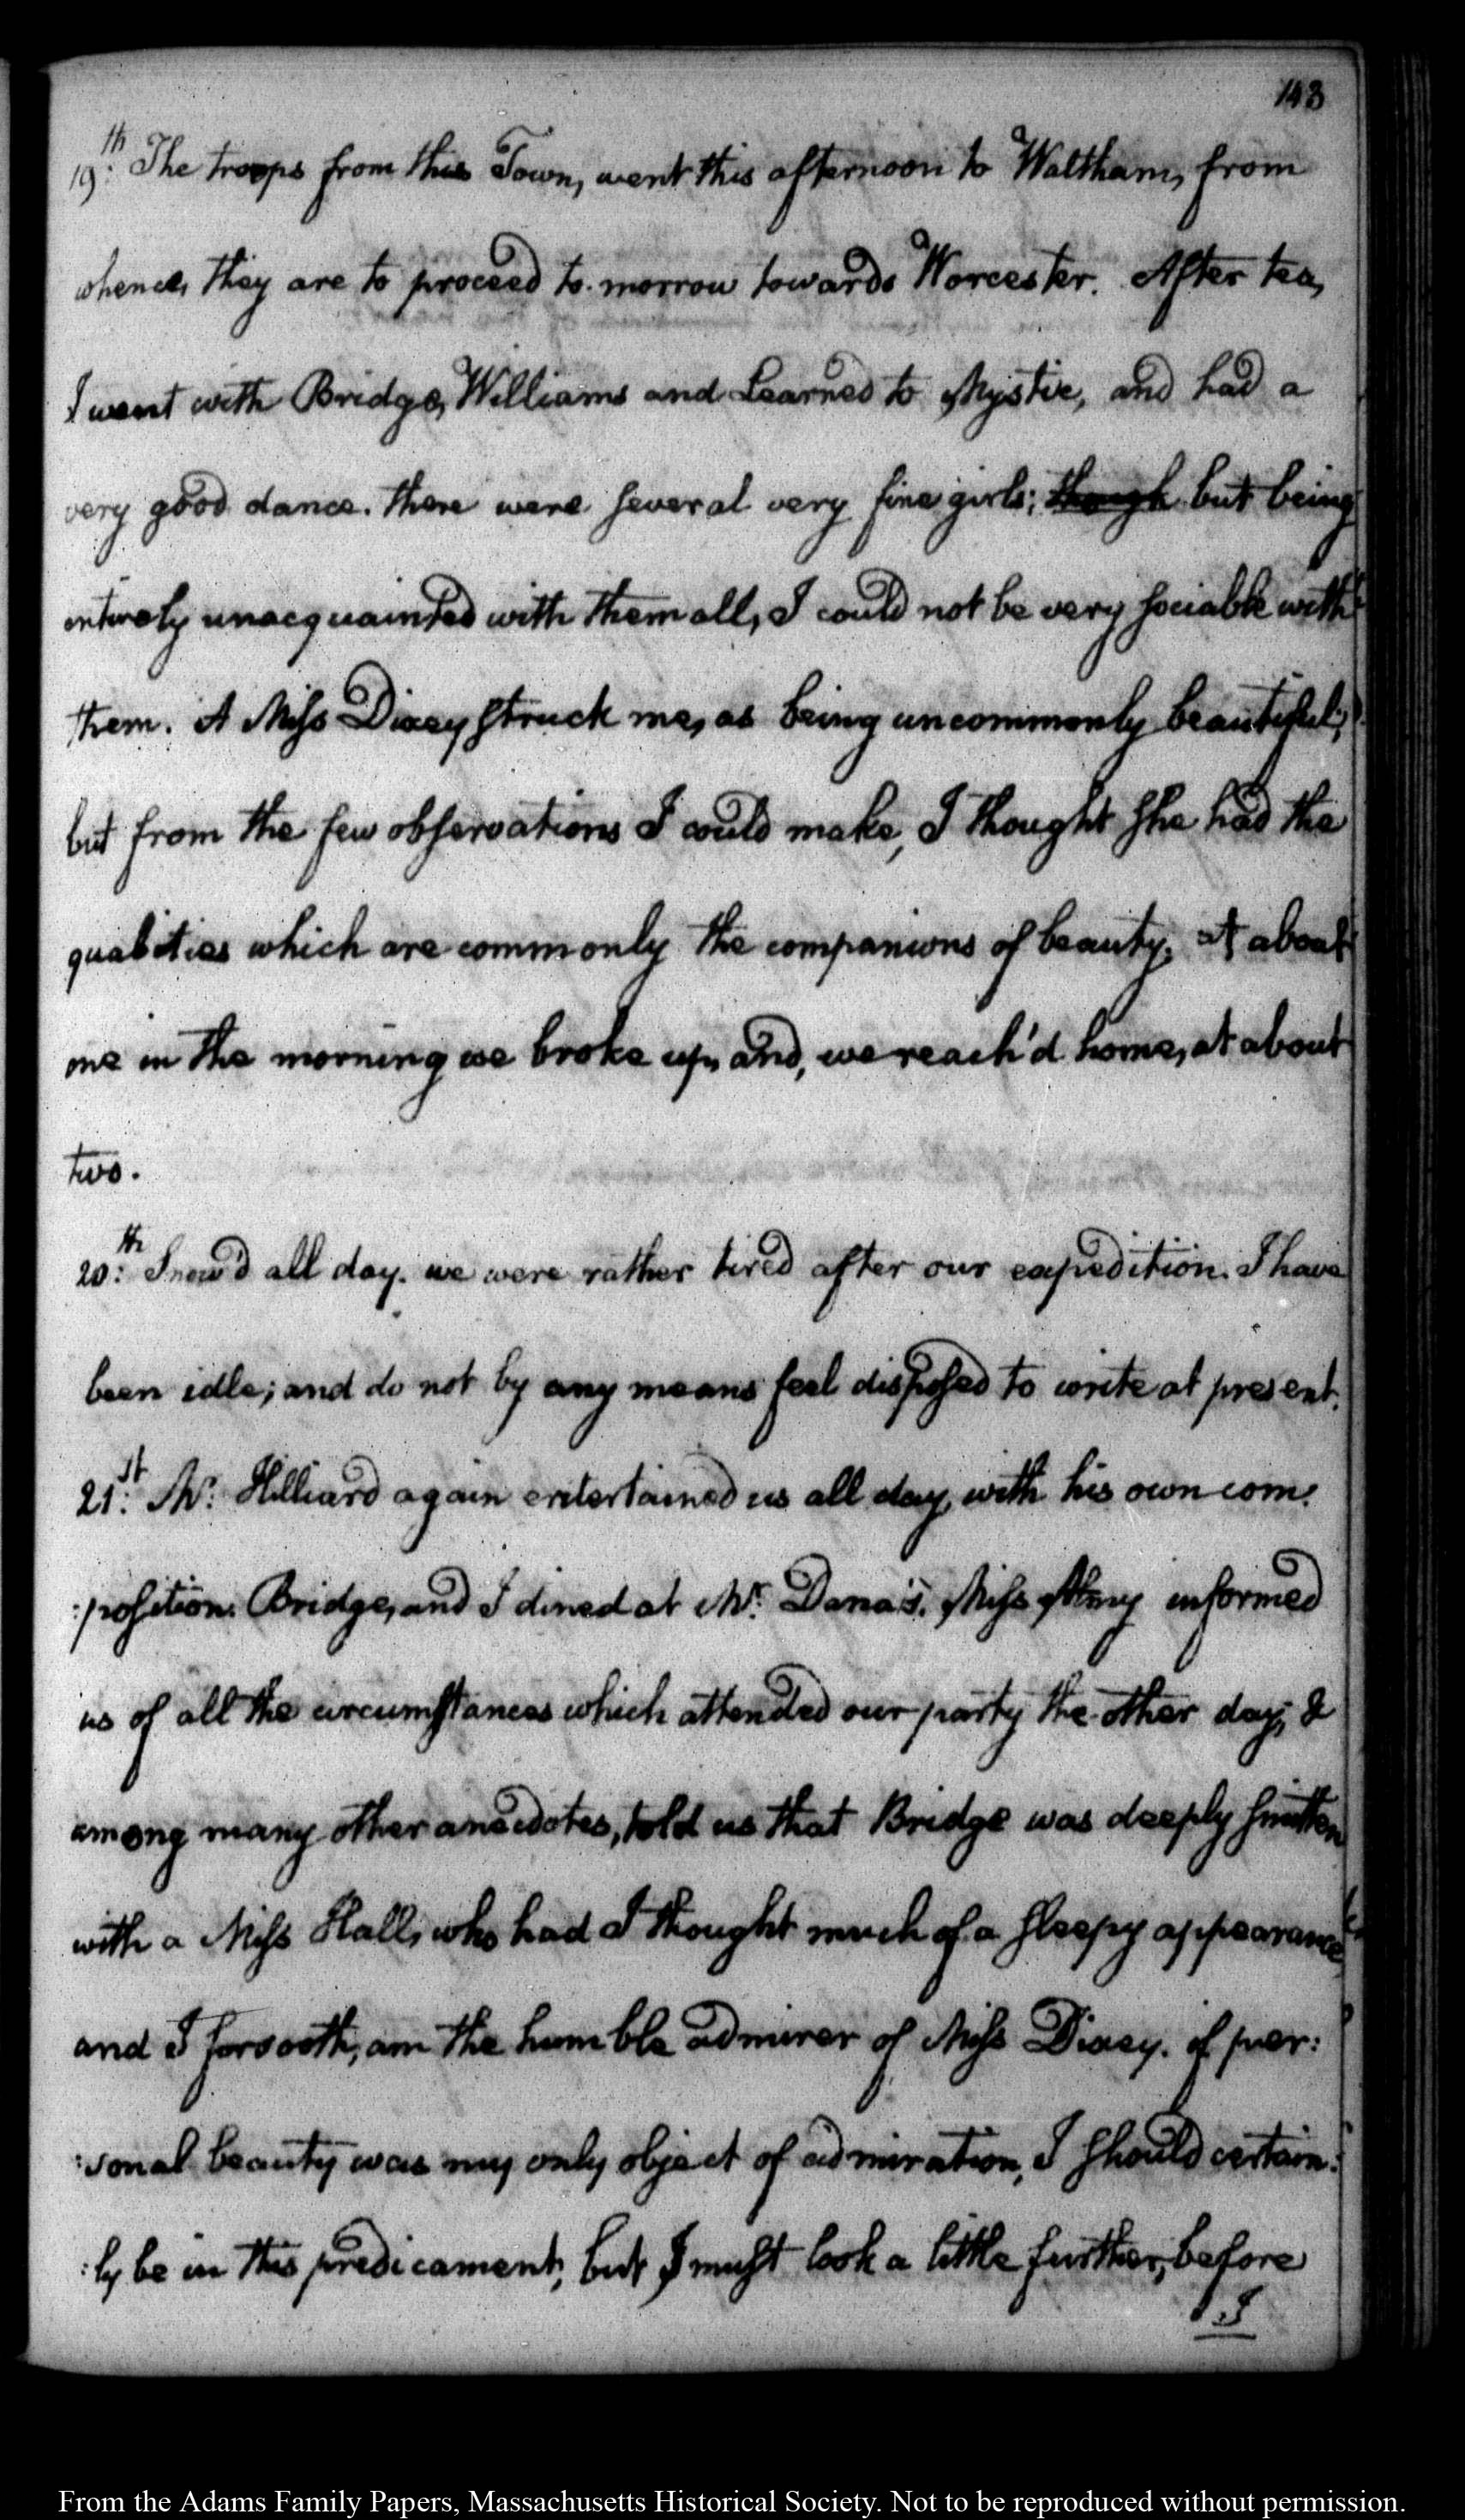 143
19th: The troops from this Town, went this afternoon to Waltham, from
whence, they are to proceed to-morrow towards Worcester. After tea,
I went with Bridge, Williams and Learned to Mystic, and had a
very good dance. there were several very fine girls; though but being
entirely unacquainted with them all, I could not be very sociable with
them. A Miss Dixey struck me, as being uncommonly beautiful;
but from the few observations I could make, I thought she had the
qualities which are commonly the companions of beauty. At about
one in the morning we broke up, and, we reach'd home, at about
two.
20th: Snow'd all day. we were rather tired after our expedition. I have
been idle; and do not by any means feel disposed to write at present.
21st: Mr: Hilliard again entertained us all day, with his own com:
:position. Bridge, and I dined at Mr: Dana's. Miss Almy informed
us of all the circumstances which attended our party the other day; &
among many other anecdotes, told us that Bridge was deeply smitten
with a Miss Hall, who had I thought much of a sleepy appearance
and I forsooth, am the humble admirer of Miss Dixey. if per:
:sonal beauty was my only object of admiration, I should certain:
:ly be in this predicament; but I must look a little further, before
I
From the Adams Family Papers, Massachusetts Historical Society. Not to be reproduced without permission.